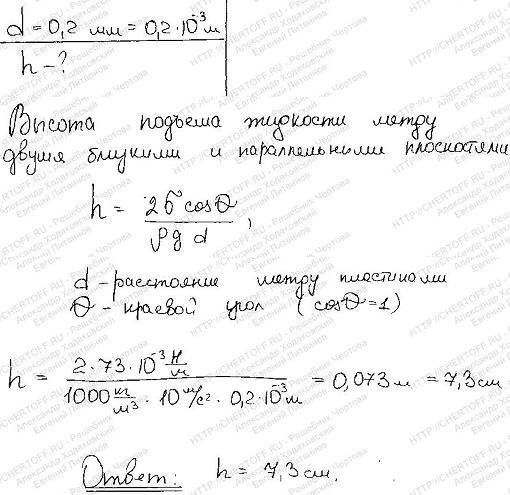 d = 0,2 мм = 0,2·10⁻³ м
h - ?
Высота подъема жидкости между
двумя близкими и параллельными плоскостями
h = 2σ cosθ / ρ g d ,
d - расстояние между пластинами
θ - краевой угол (cosθ = 1)
h = 2·73·10⁻³ Н/м / 1000 кг/м³ · 10 м/с² · 0,2·10⁻³ м = 0,073 м = 7,3 см
Ответ: h = 7,3 см.
HTTP://CHERTOFF.RU - Решебник Чертова
Александр Ходаковский
Евгений Литвинов